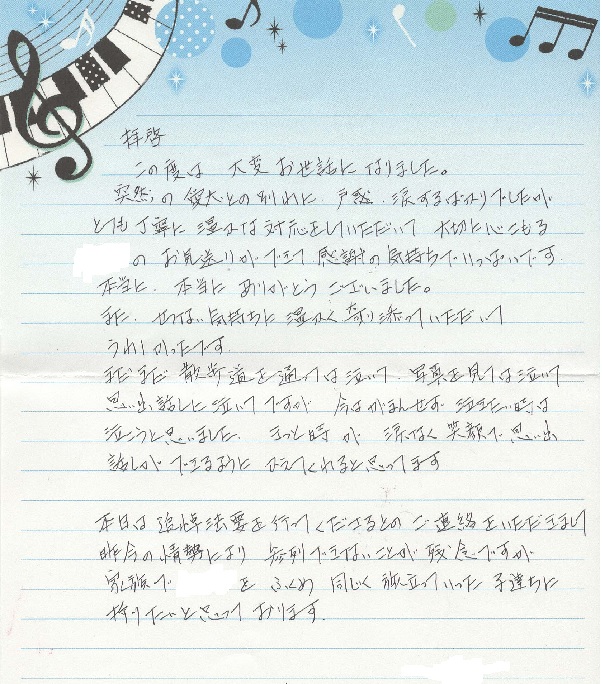 拝啓
この度は 大変 お世話に なりました。
突然の 愛犬との別れに 戸惑い 涙するばかりでしたが
とても 丁寧に 温かな 対応をしていただいて 大切に心こもる
の お見送りができて 感謝の気持ちでいっぱいです
本当に、本当に ありがとう ございました。
また、せつない気持ちに 温かく 寄り添っていただいて
うれしかったです。
まだまだ 散歩道を 通っては泣いて、写真を見ては泣いて
思い出話しに 泣いてですが 今はがまんせず 泣きたい時は
泣こうと思いました。きっと時が 涙なく 笑顔で 思い出
話しが できるように してくれると思ってます
本日は 追悼法要を 行ってくださるとの ご連絡をいただきまして
昨今の情勢により 参列できないことが 残念ですが
家族で を ふくめ 同じく 旅立っていった 子達ちに
祈りたいと思って おります。